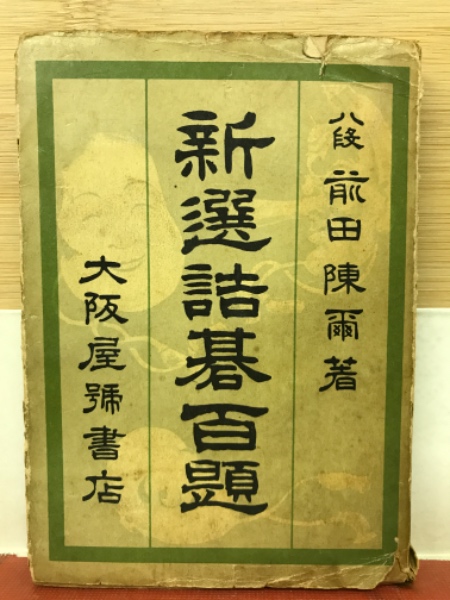 八段 前田陳爾著
新選詰碁百題
大阪屋號書店